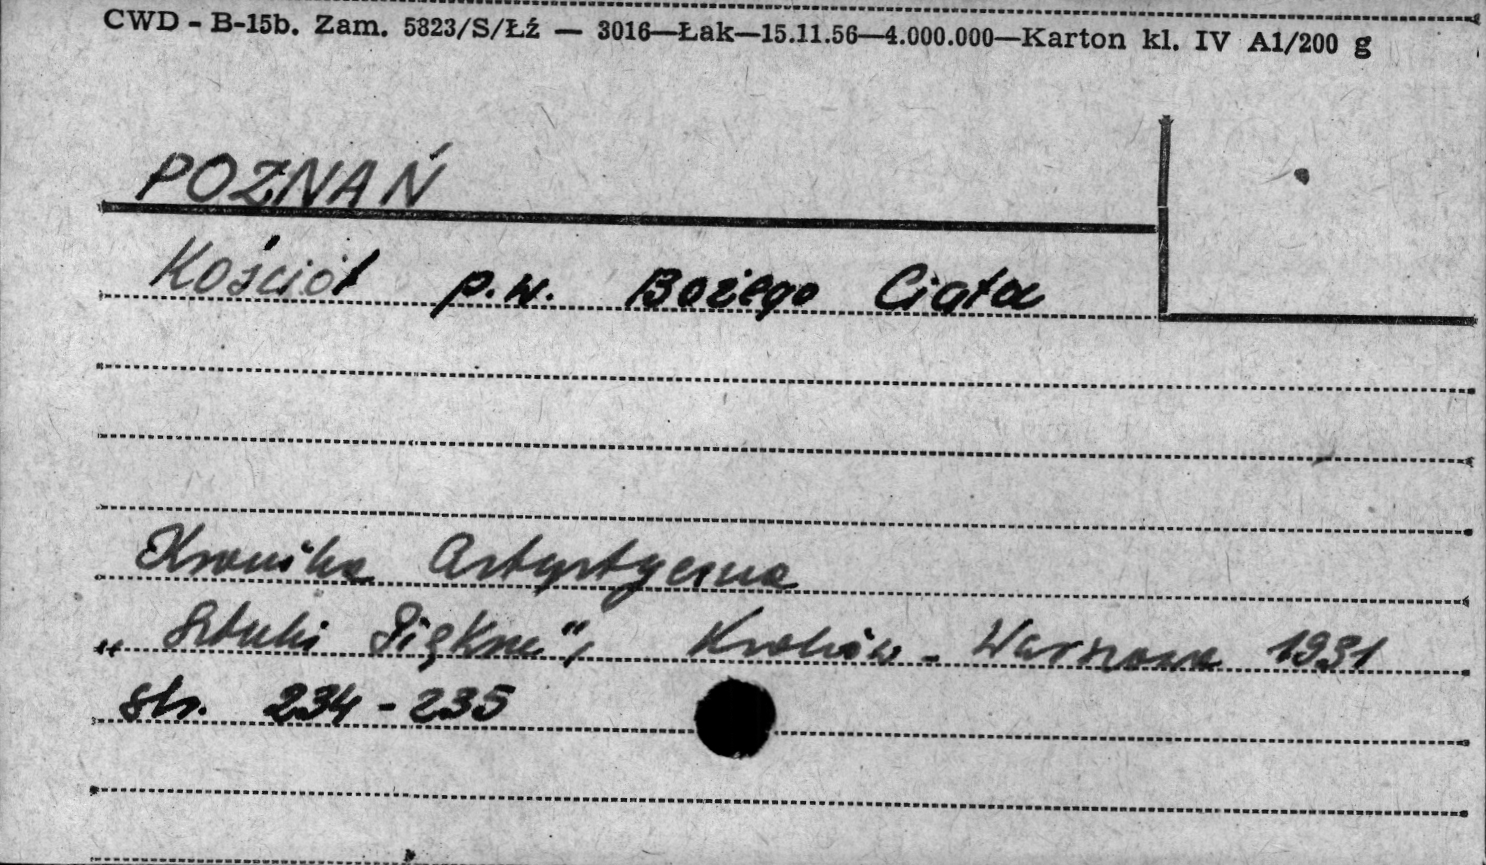 CWD - B-15b. Zam. 5823/S/Łź — 3016—Łak—15.11.56—4.000.000—Karton kl. IV A1/200 g
POZNAŃ
Kościół p.w. Bożego Ciała
Kronika Artystyczna
„Sztuki Piękne", Kraków - Warszawa 1931
str. 234 - 235